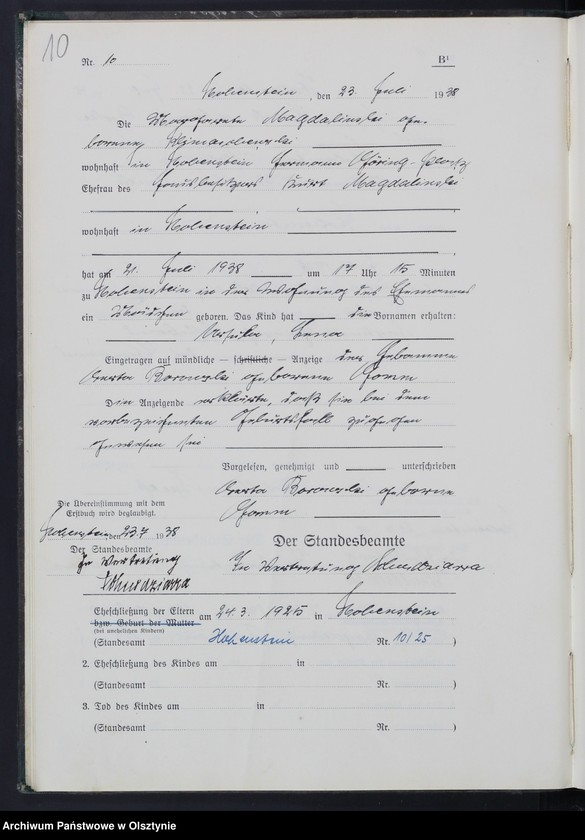 10
Nr. 10
B¹
Hohenstein, den 23. Juli 1938
Die Margarete Magdalinski ge-
borene
wohnhaft in Hohenstein Hermann Göring-Platz
Ehefrau des Hausbesitzers Kurt Magdalinski
wohnhaft in Hohenstein
hat am 21. Juli 1938 um 17 Uhr 15 Minuten
zu Hohenstein in der Wohnung des Ehemannes
ein Mädchen geboren. Das Kind hat die Vornamen erhalten:
Ursula, Lena
Eingetragen auf mündliche — schriftliche — Anzeige der Hebamme
Berta Borowski geborene
Die Anzeigende erklärte, daß sie bei dem
vorbezeichneten Geburtsfall zugegen
gewesen sei
Vorgelesen, genehmigt und unterschrieben
Berta Borowski geborene
Die Übereinstimmung mit dem
Erstbuch wird beglaubigt.
Hohenstein, den 23.7 1938
Der Standesbeamte
In Vertretung
Der Standesbeamte
In Vertretung
Eheschließung der Eltern am 24.3. 1925 in Hohenstein
bzw. Geburt der Mutter
(bei unehelichen Kindern)
(Standesamt Hohenstein Nr. 10/25)
2. Eheschließung des Kindes am in
(Standesamt Nr. )
3. Tod des Kindes am in
(Standesamt Nr. )
Archiwum Państwowe w Olsztynie